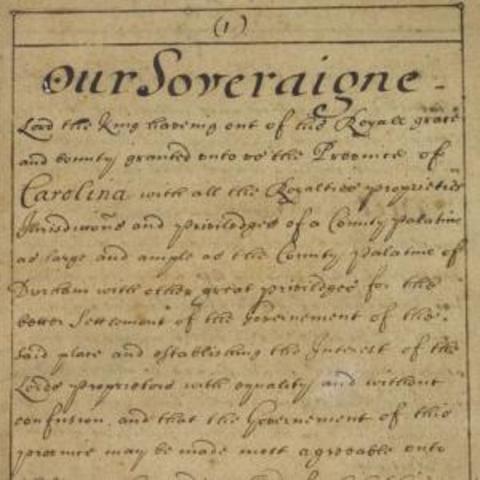 (1)
Our Soveraigne -
Lord the King haveing out of his Royall grace
and bounty granted unto us the Province of
Carolina with all the Royalties proprieties
Jurisdictions and priviledges of a County palatine
as large and ample as the County Palatine of
Durham with other great priviledges for the
better Settlement of the Governement of the
said place and establishing the Interest of the
Lords proprietors with equality and without
confusion, and that the Governement of this
province may be made most agreeable unto